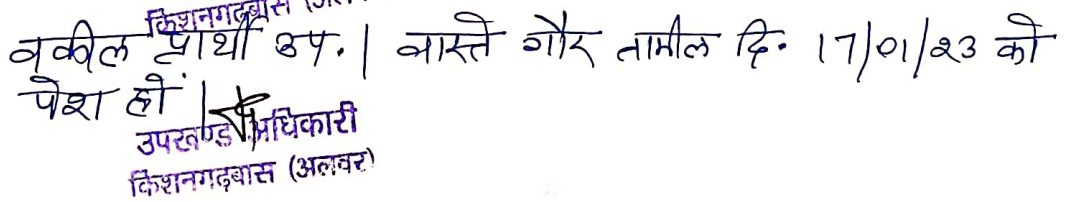 किशनगढ़बास (अल
वकील प्रार्थी उप.। वास्ते गौर तामील दि. 17/01/23 को
पेश हो।
उपखण्ड अधिकारी
किशनगढ़बास (अलवर)